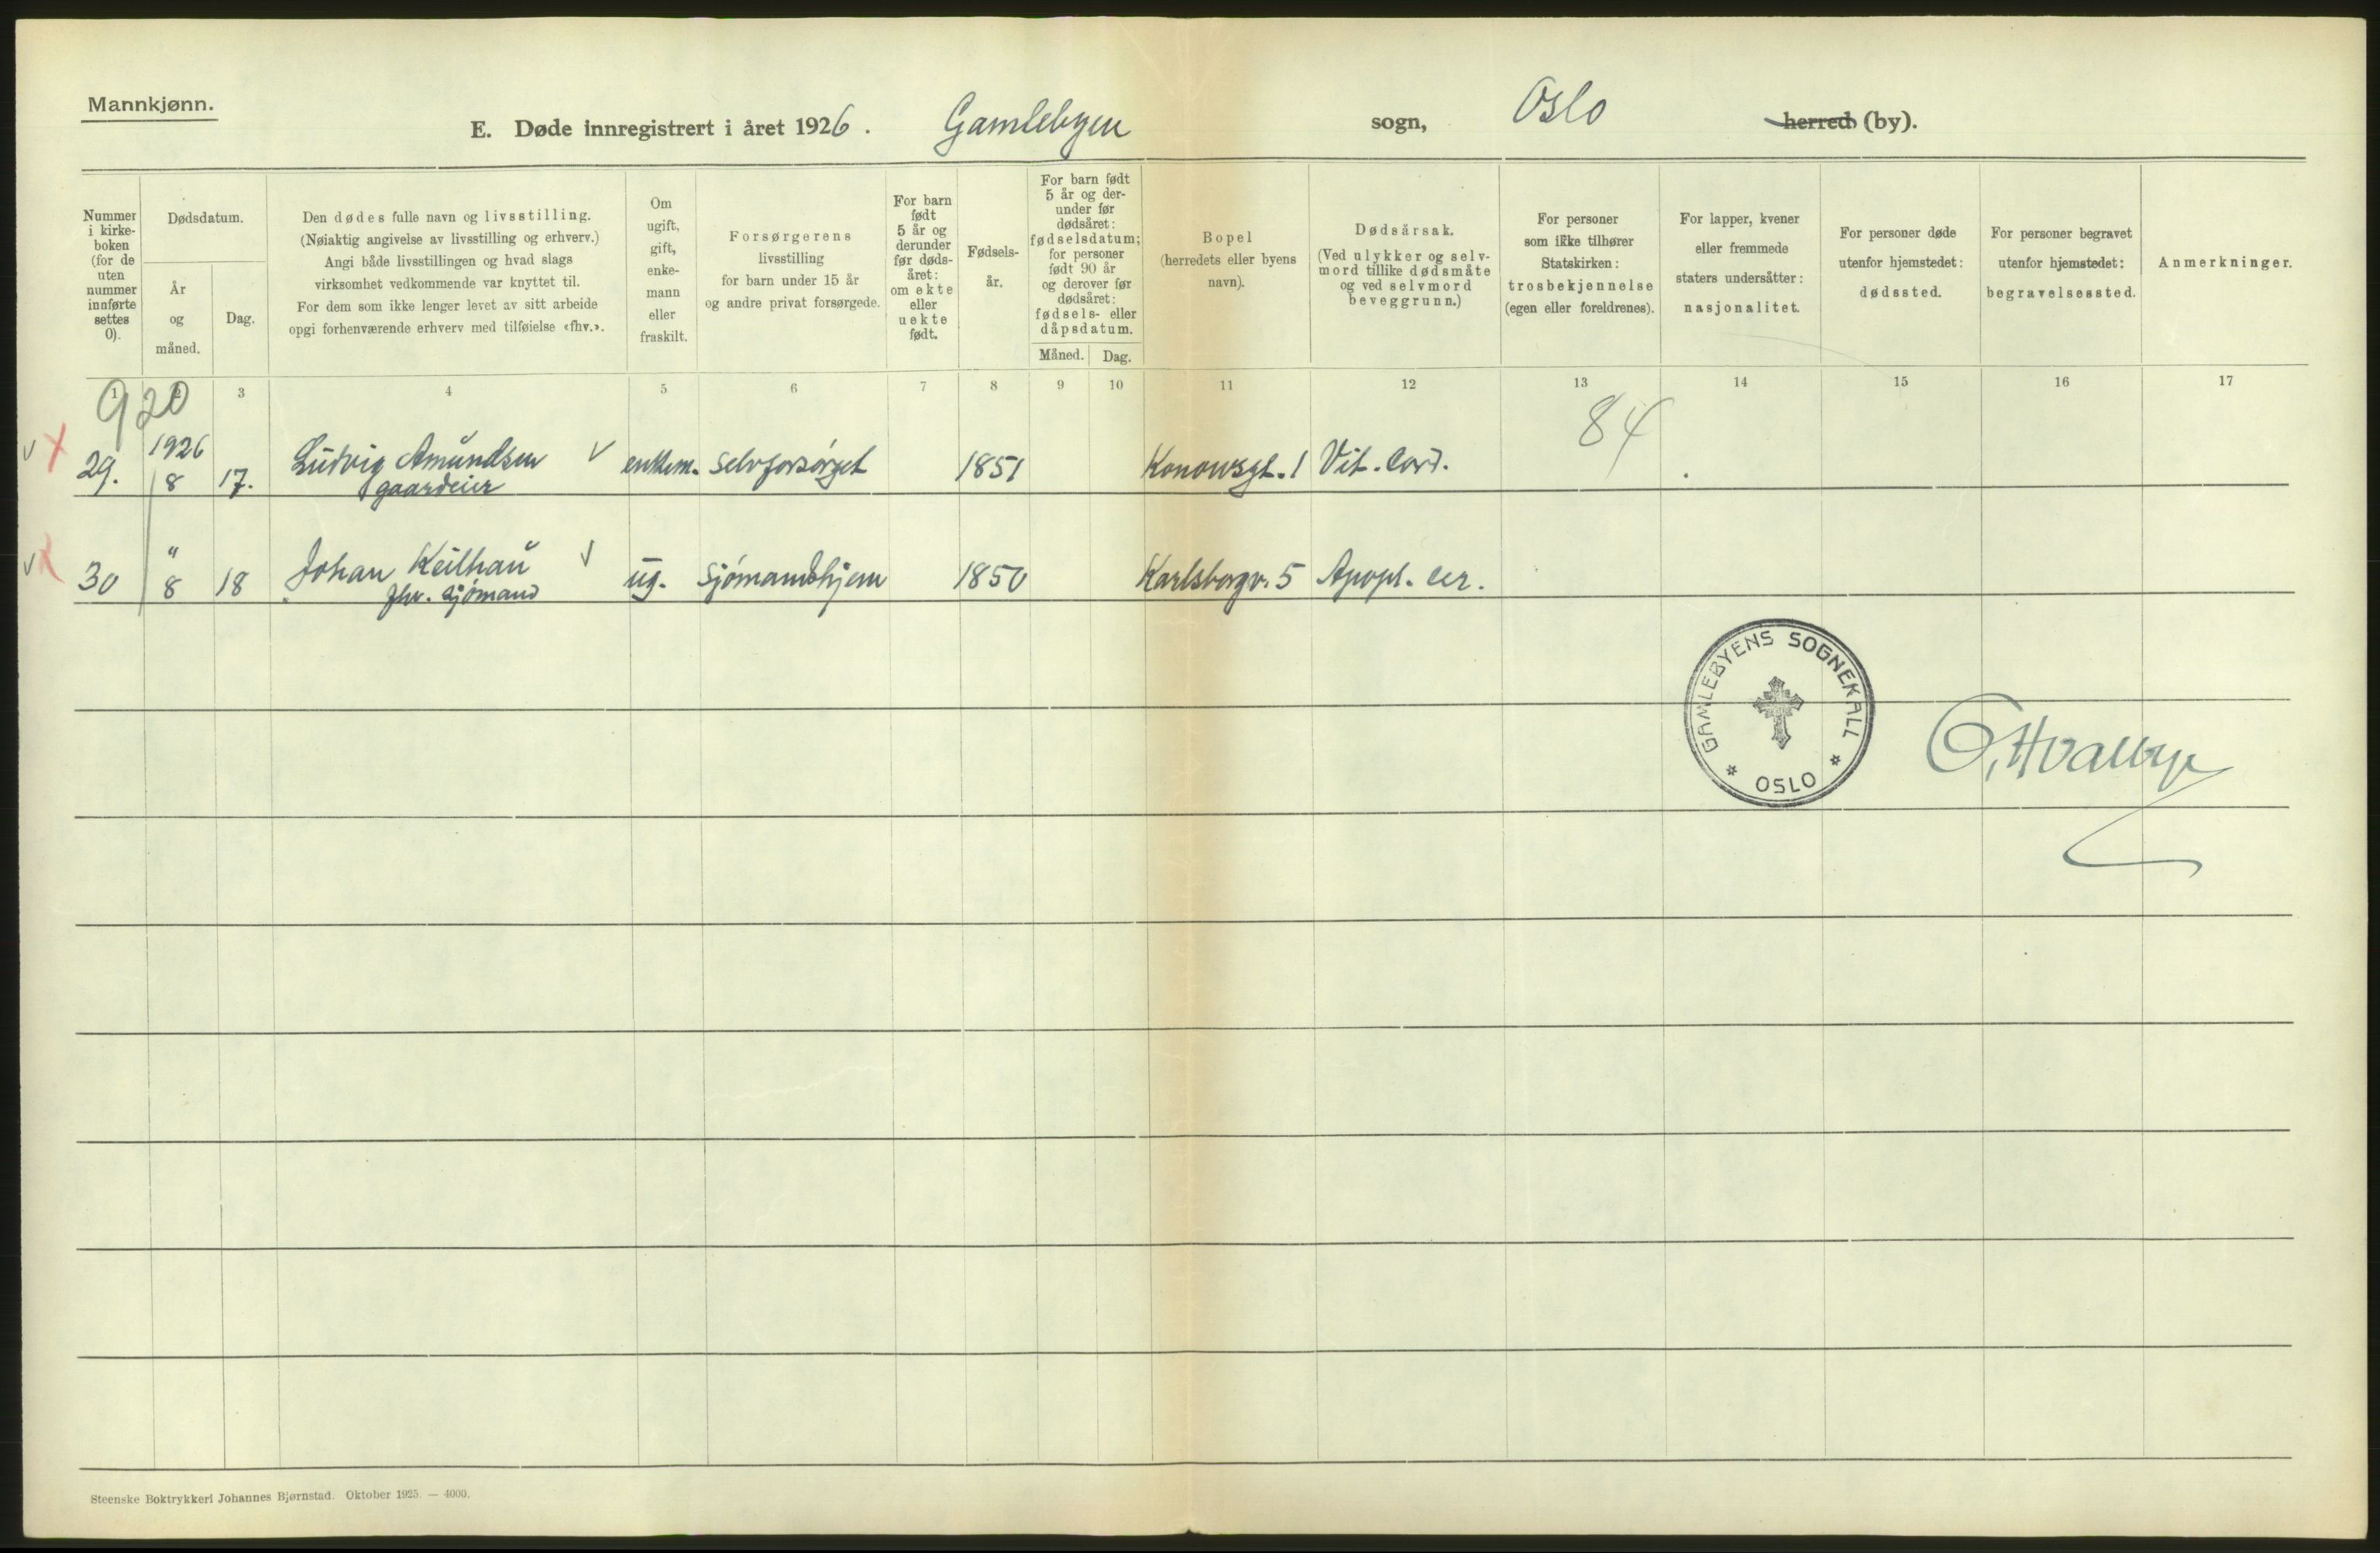 Mannkjønn.
E. Døde innregistrert i året 1926. Gamlebyen sogn, Oslo herred (by).
Nummer i kirke-boken (for de uten nummer innførte settes 0).
Dødsdatum.
År og måned.
Dag.
Den dødes fulle navn og livsstilling.
(Nøiaktig angivelse av livsstilling og erhverv.)
Angi både livsstillingen og hvad slags
virksomhet vedkommende var knyttet til.
For dem som ikke lenger levet av sitt arbeide
opgi forhenværende erhverv med tilføielse «fhv.».
Om ugift, gift, enke-mann eller fraskilt.
Forsørgerens
livsstilling
for barn under 15 år
og andre privat forsørgede.
For barn født 5 år og derunder før døds-året: om ekte eller uekte født.
Fødsels-år.
For barn født 5 år og der-under før dødsåret: fødselsdatum; for personer født 90 år og derover før dødsåret: fødsels- eller dåpsdatum.
Måned. Dag.
Bopel
(herredets eller byens
navn).
Dødsårsak.
(Ved ulykker og selv-
mord tillike dødsmåte
og ved selvmord
beveggrunn.)
For personer
som ikke tilhører
Statskirken:
trosbekjennelse
(egen eller foreldrenes).
For lapper, kvener
eller fremmede
staters undersåtter:
nasjonalitet.
For personer døde
utenfor hjemstedet:
dødssted.
For personer begravet
utenfor hjemstedet:
begravelsessted.
Anmerkninger.
1 2 3 4 5 6 7 8 9 10 11 12 13 14 15 16 17
920
84
29. 1926 8 17. Ludvig Amundsen enkem. selvforsørget 1851 Konowsgt. 1 Vit. Cord.
gaardeier
30 " 8 18 Johan Keilhau ug. Sjømandshjem 1850 Karlsborgv. 5 Apopl. cer.
fhv. sjømand
GAMLEBYENS SOGNEKALL
* OSLO *
Steenske Boktrykkeri Johannes Bjørnstad. Oktober 1925. — 4000.